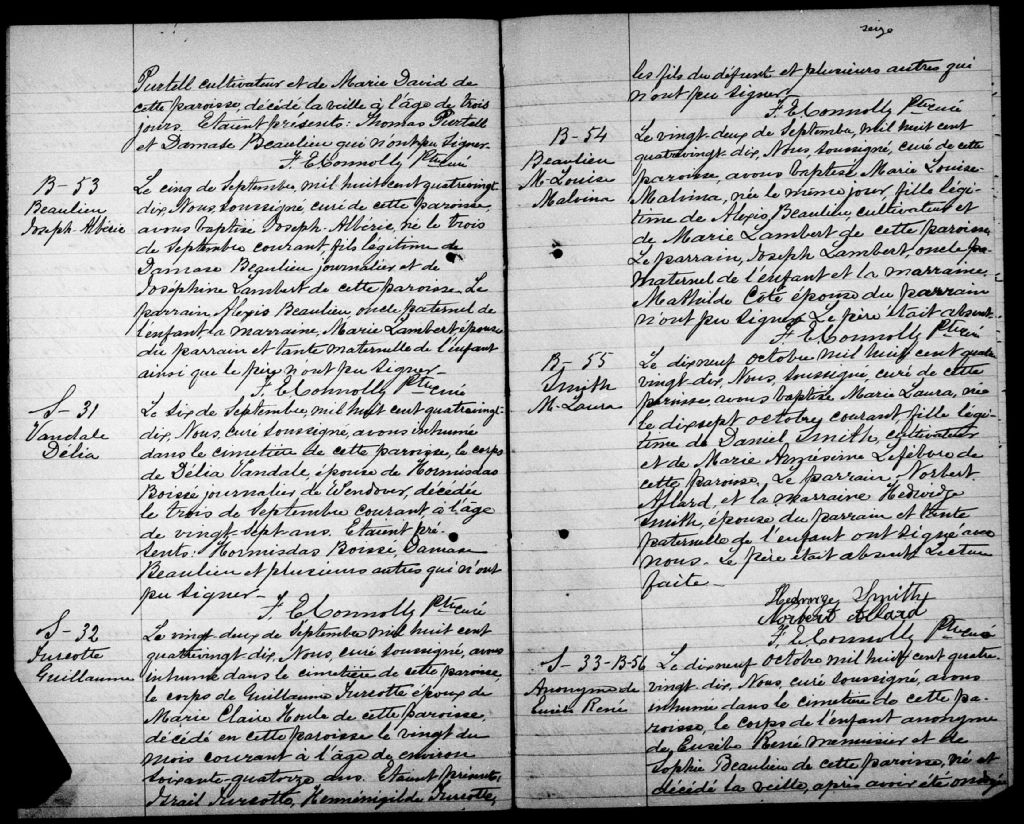 Purtell cultivateur et de Marie David de
cette paroisse, décédé la veille à l'âge de trois
jours. Etaient présents: Thomas Purtell
et Damase Beaulieu qui n'ont pu signer
F. E. Connolly Ptre curé
B-53
Beaulieu
Joseph-Albéric
Le cinq de Septembre, mil huit cent quatrevingt
dix, Nous, soussigné, curé de cette paroisse,
avons baptisé Joseph-Albéric, né le trois
de Septembre courant, fils légitime de
Damase Beaulieu journalier et de
Joséphine Lambert de cette paroisse. Le
parrain Alexis Beaulieu, oncle paternel de
l'enfant, la marraine, Marie Lambert épouse
du parrain et tante maternelle de l'enfant
ainsi que le père n'ont pu signer-
F. E. Connolly Ptre curé
S-31
Vandale
Délia
Le six de Septembre, mil huit cent quatrevingt-
dix, Nous, curé soussigné, avons inhumé
dans le cimetière de cette paroisse, le corps
de Délia Vandale, épouse de Hormisdas
Boisse journalier de Wendover, décédée
le trois de Septembre courant à l'âge
de vingt-sept ans. Etaient pré-
sents: Hormisdas Boisse, Damase
Beaulieu et plusieurs autres qui n'ont
pu signer-
F. E. Connolly Ptre curé
S-32
Turcotte
Guillaume
Le vingt-deux de Septembre mil huit cent
quatrevingt dix, Nous, curé soussigné, avons
inhumé dans le cimetière de cette paroisse,
le corps de Guillaume Turcotte époux de
Marie Claire Houle de cette paroisse,
décédé en cette paroisse le vingt du
mois courant à l'âge de environ
soixante-quatorze ans. Etaient présents,
Israil Turcotte, Herménigilde Turcotte,
seize
les fils du défunt et plusieurs autres qui
n'ont pu signer-
F. E. Connolly Ptre curé
B-54
Beaulieu
M-Louise
Malvina
Le vingt-deux de Septembre, mil huit cent
quatrevingt-dix, Nous, soussigné, curé de cette
paroisse, avons baptisé Marie Louise-
Malvina, née le même jour fille légi-
time de Alexis, Beaulieu, cultivateur et
de Marie Lambert de cette paroisse
Le parrain, Joseph Lambert, oncle
maternel de l'enfant et la marraine
Mathilde Côté épouse du parrain
n'ont pu signer. Le père était absent
F. E. Connolly Ptre curé
B-55
Smith
M-Laura
Le dixneuf octobre mil huit cent quatre
vingt-dix, Nous, soussigné, curé de cette
paroisse, avons baptisé Marie Laura, née
le dixsept octobre courant fille légi-
time de Daniel Smith, cultivateur
et de Marie Lefebvre de
cette paroisse, Le parrain, Norbert
Allard, et la marraine Hedwidge
Smith, épouse du parrain et tante
paternelle de l'enfant ont signé avec
nous. Le père était absent. Lecture
faite-
Hedwige Smith
Norbert Allard
F. E. Connolly Ptre curé
S-33-B-56
Anonyme de
René
Le dixneuf octobre mil huit cent quatre-
vingt-dix, Nous, curé soussigné, avons
inhumé dans le cimetière de cette pa-
roisse, le corps de l'enfant anonyme
de Eusèbe René menuisier et de
Sophie Beaulieu de cette paroisse, né et
décédé la veille, après avoir été ondoyé